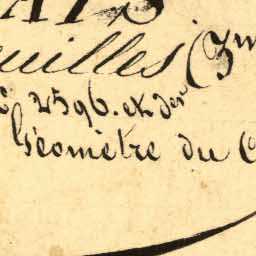 uilles (3m
2596. et der
Géomètre du C